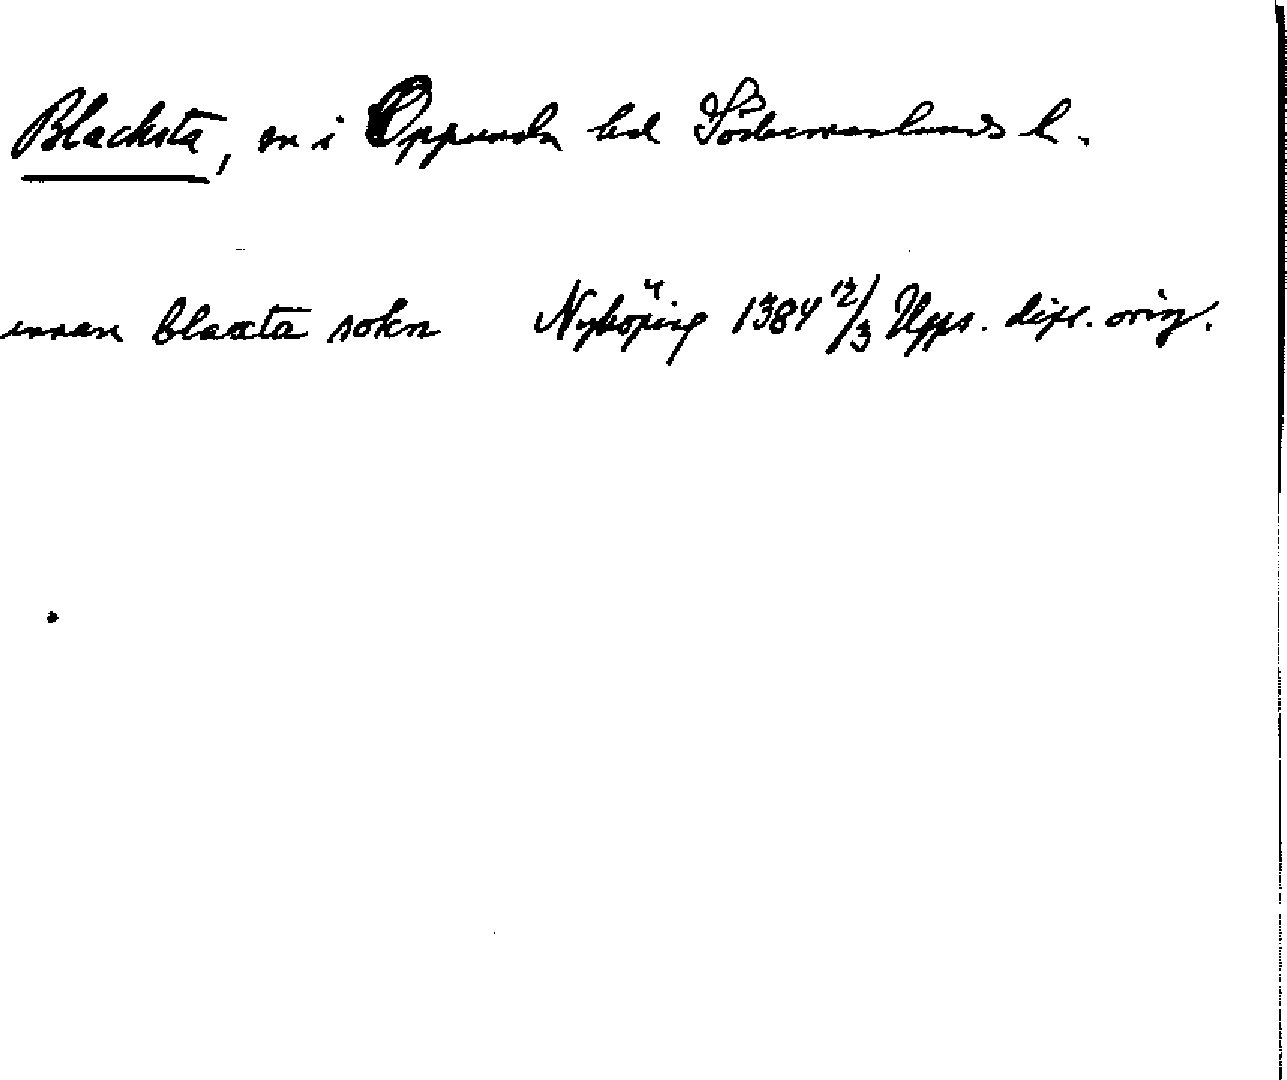 Blacksta, sn i Oppunda hd Södermanlands l.
innan blaxta sokn Nyköping 1384 12/3 Upps. dipl. orig.